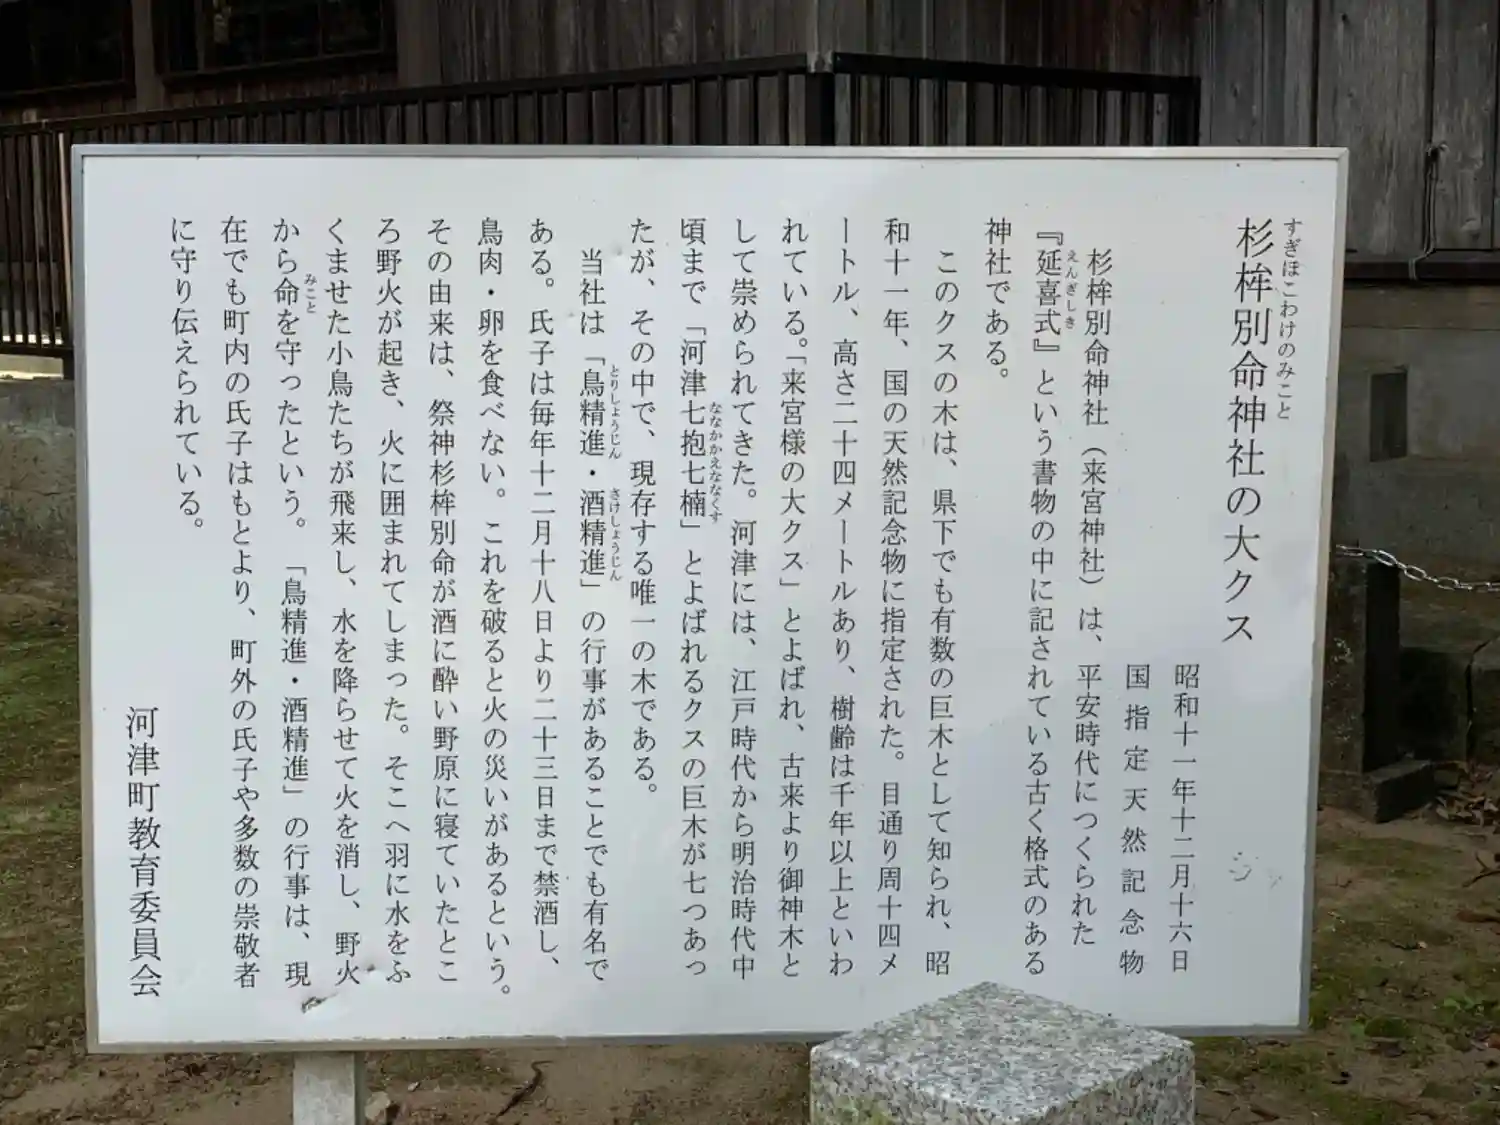 杉桙別命神社の大クス
すぎほこわけのみこと
昭和十一年十二月十六日
国指定天然記念物
杉桙別命神社（来宮神社）は、平安時代につくられた
『延喜式』という書物の中に記されている古く格式のある
えんぎしき
神社である。
このクスの木は、県下でも有数の巨木として知られ、昭
和十一年、国の天然記念物に指定された。目通り周十四メ
ートル、高さ二十四メートルあり、樹齢は千年以上といわ
れている。「来宮様の大クス」とよばれ、古来より御神木と
して崇められてきた。河津には、江戸時代から明治時代中
頃まで「河津七抱七楠」とよばれるクスの巨木が七つあっ
ななかかえななくす
たが、その中で、現存する唯一の木である。
当社は「鳥精進・酒精進」の行事があることでも有名で
とりしょうじん
さけしょうじん
ある。氏子は毎年十二月十八日より二十三日まで禁酒し、
鳥肉・卵を食べない。これを破ると火の災いがあるという。
その由来は、祭神杉桙別命が酒に酔い野原に寝ていたとこ
ろ野火が起き、火に囲まれてしまった。そこへ羽に水をふ
くませた小鳥たちが飛来し、水を降らせて火を消し、野火
から命を守ったという。「鳥精進・酒精進」の行事は、現
みこと
在でも町内の氏子はもとより、町外の氏子や多数の崇敬者
に守り伝えられている。
河津町教育委員会